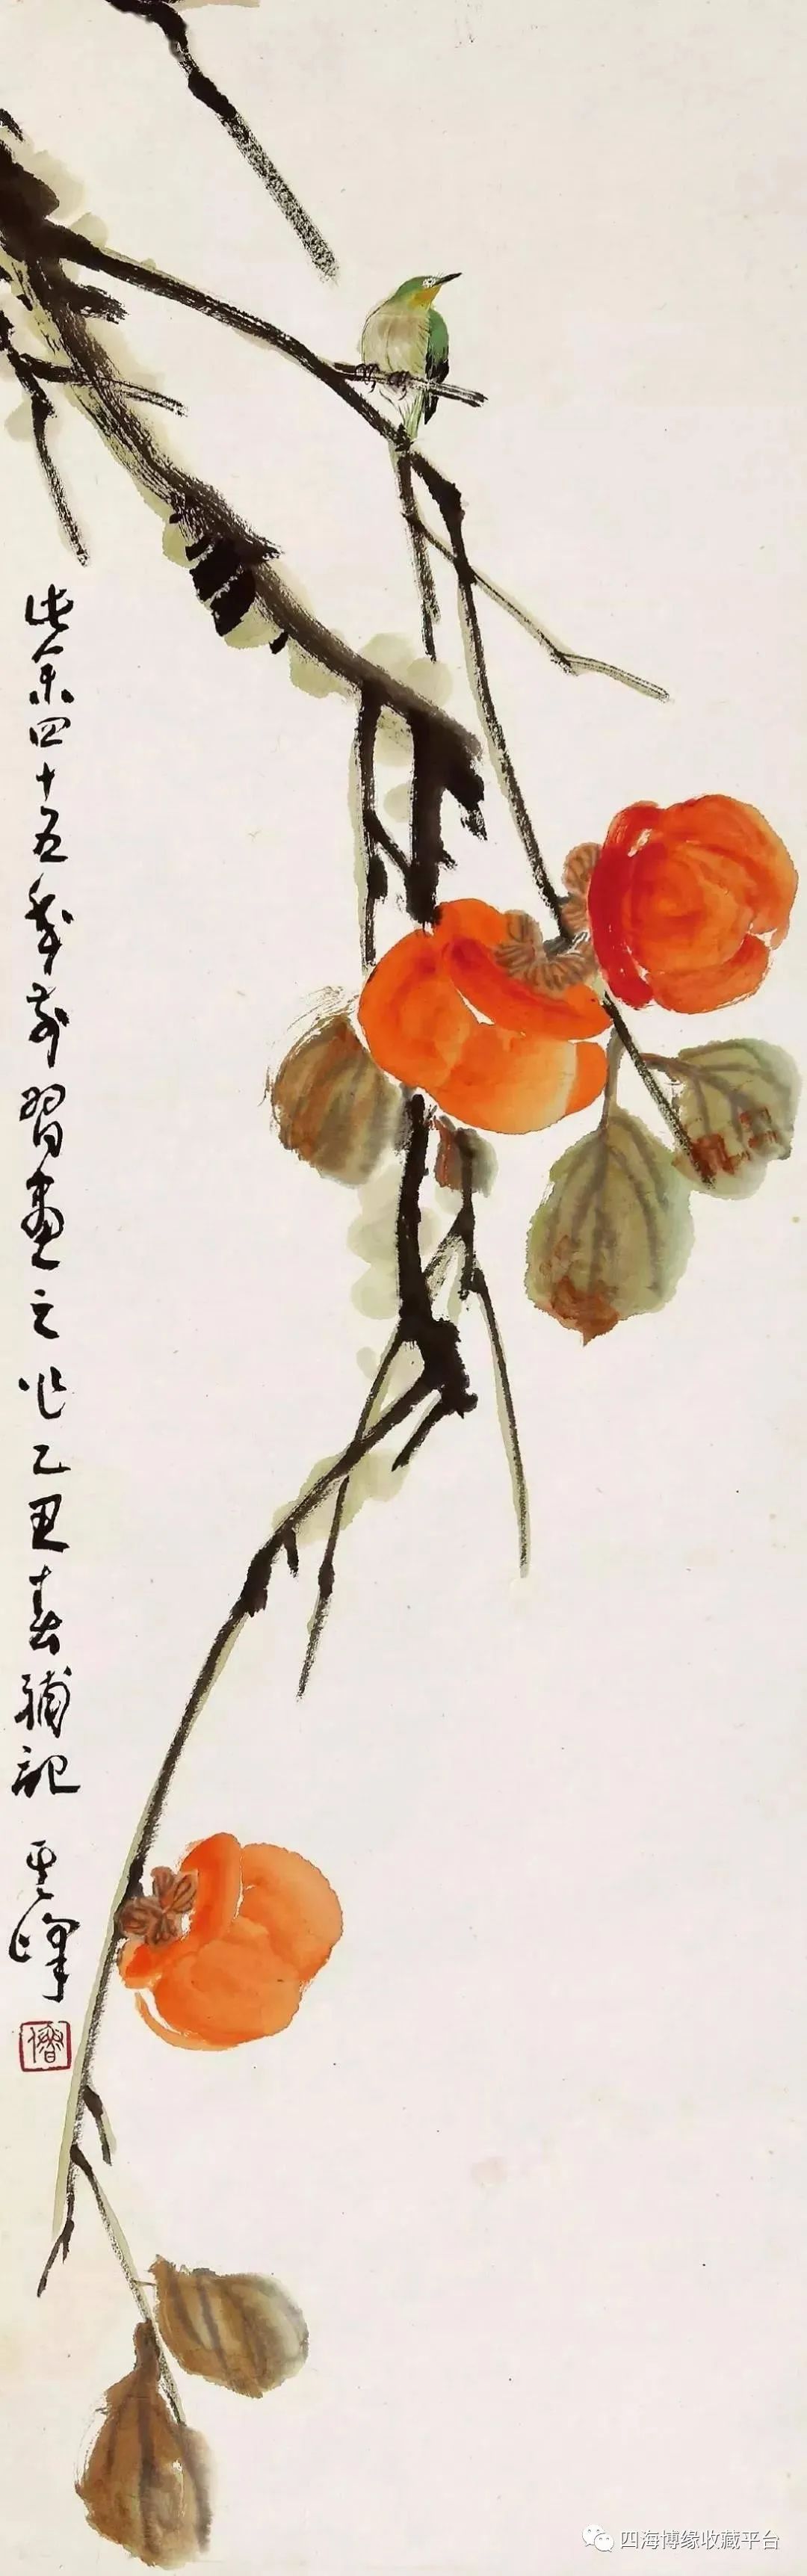 此余四十五年前習畫之作乙丑春補記
雲峰
四海博缘收藏平台